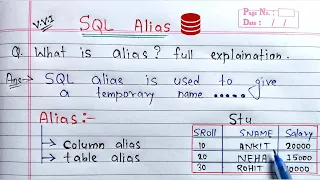 Page No.:
Date: / /
V.V.I SQL Alias
Q. What is alias? full explaination.
Ans:- SQL alias is used to give
a temporary name .....
Alias:-
→ Column alias
→ table alias
Stu
SRoll SNAME Salary
10 ANKIT 20000
20 NEHA 15000
30 ROHIT 10000